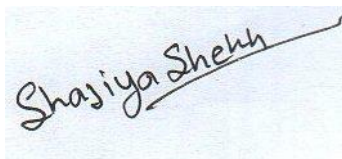 Shajiya Shehh